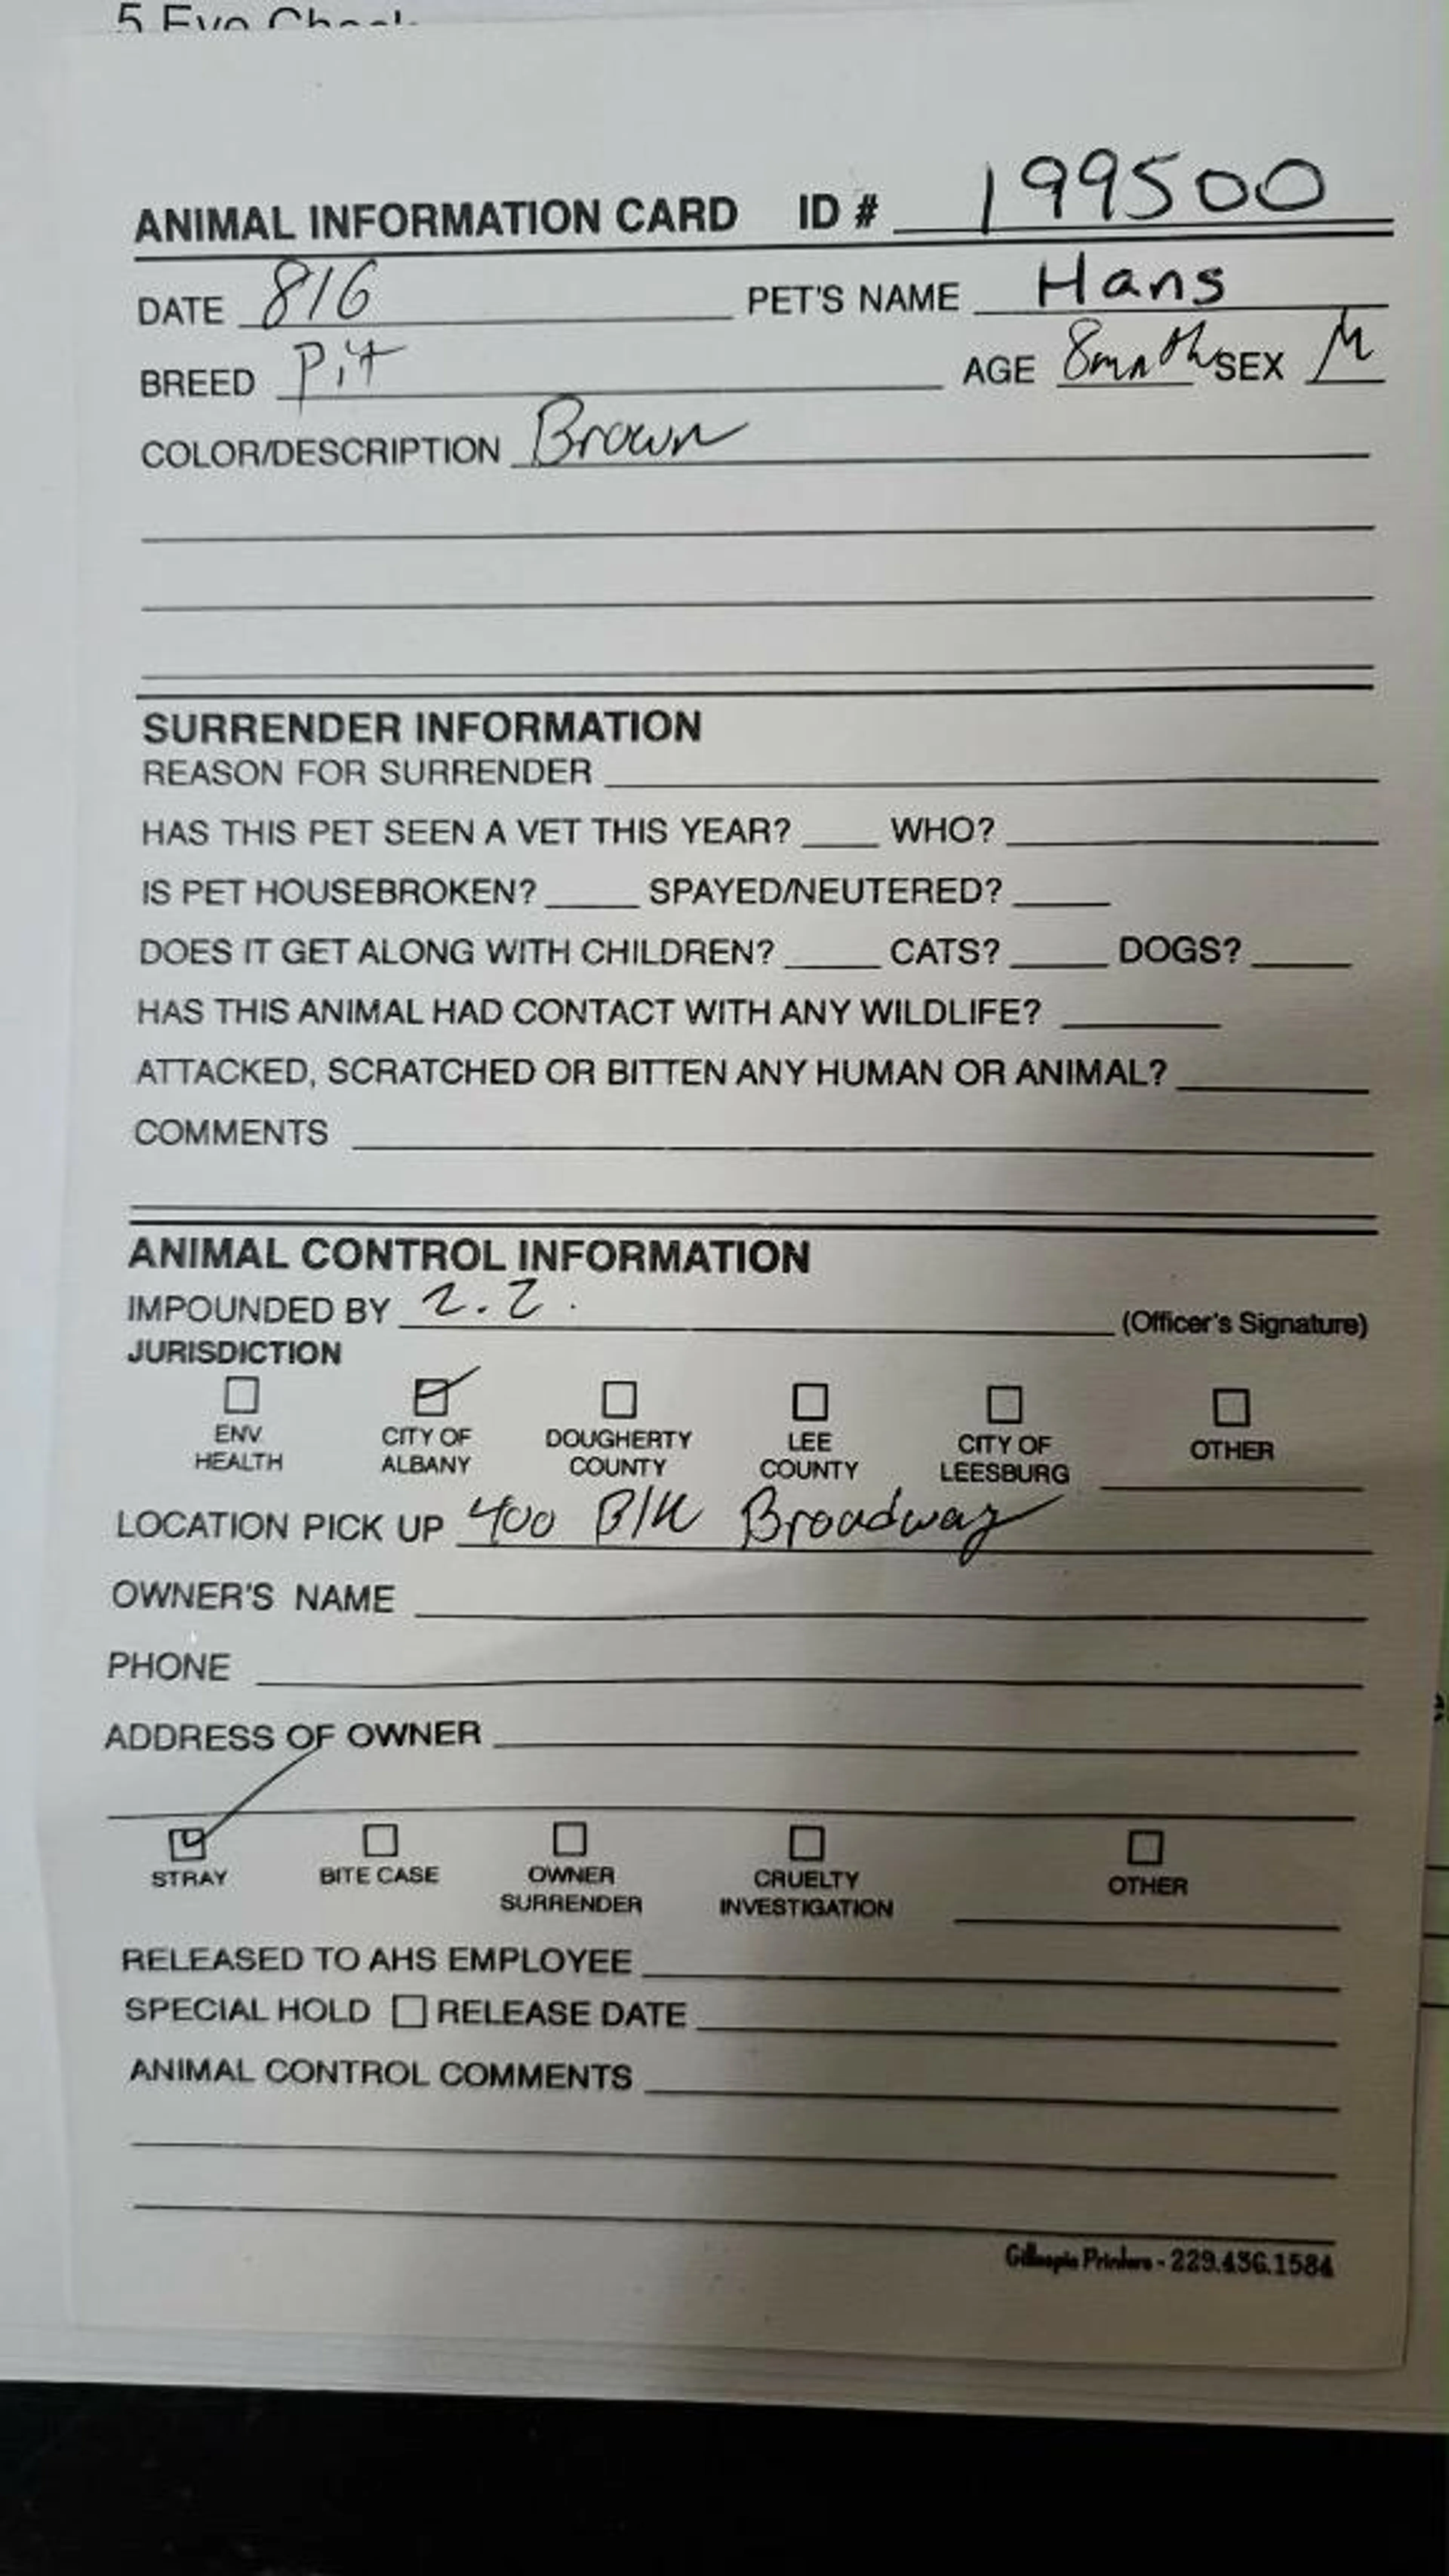 ANIMAL INFORMATION CARD ID # 199500
DATE 8/6 PET'S NAME Hans
BREED Pit AGE 8mnth SEX M
COLOR/DESCRIPTION Brown
SURRENDER INFORMATION
REASON FOR SURRENDER
HAS THIS PET SEEN A VET THIS YEAR? WHO?
IS PET HOUSEBROKEN? SPAYED/NEUTERED?
DOES IT GET ALONG WITH CHILDREN? CATS? DOGS?
HAS THIS ANIMAL HAD CONTACT WITH ANY WILDLIFE?
ATTACKED, SCRATCHED OR BITTEN ANY HUMAN OR ANIMAL?
COMMENTS
ANIMAL CONTROL INFORMATION
IMPOUNDED BY (Officer's Signature)
JURISDICTION
ENV. HEALTH CITY OF ALBANY DOUGHERTY COUNTY LEE COUNTY CITY OF LEESBURG OTHER
LOCATION PICK UP 400 Blk Broadway
OWNER'S NAME
PHONE
ADDRESS OF OWNER
STRAY BITE CASE OWNER SURRENDER CRUELTY INVESTIGATION OTHER
RELEASED TO AHS EMPLOYEE
SPECIAL HOLD RELEASE DATE
ANIMAL CONTROL COMMENTS
Gillespie Printers - 229.436.1584